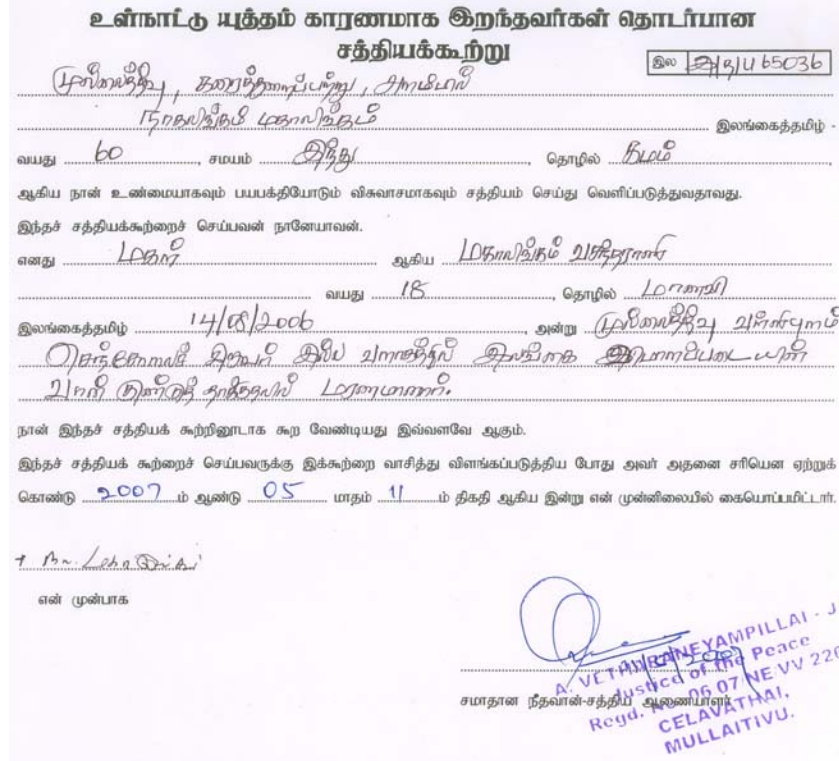 உள்நாட்டு யுத்தம் காரணமாக இறந்தவர்கள் தொடர்பான
சத்தியக்கூற்று
இல அ/ற/பு 65036
முல்லைத்தீவு, கரைத்துறைப்பற்று, அளம்பில்
நாகலிங்கம் மகாலிங்கம் இலங்கைத்தமிழ் -
வயது 60, சமயம் இந்து தொழில் கமம்,
ஆகிய நான் உண்மையாகவும் பயபக்தியோடும் விசுவாசமாகவும் சத்தியம் செய்து வெளிப்படுத்துவதாவது.
இந்தச் சத்தியக்கூற்றைச் செய்பவன் நானேயாவன்.
எனது மகள் ஆகிய மகாலிங்கம் வசந்தராணி
வயது 18, தொழில் மாணவி
இலங்கைத்தமிழ் 14/08/2006, அன்று முல்லைத்தீவு வள்ளிபுனம்
செஞ்சோலை சிறுவர் இல்ல வளாகத்தில் இலங்கை விமானப்படையின்
வான் குண்டுத் தாக்குதலில் மரணமானார்.
நான் இந்தச் சத்தியக் கூற்றினூடாக கூற வேண்டியது இவ்வளவே ஆகும்.
இந்தச் சத்தியக் கூற்றைச் செய்பவருக்கு இக்கூற்றை வாசித்து விளங்கப்படுத்திய போது அவர் அதனை சரியென ஏற்றுக்
கொண்டு 2007 ம் ஆண்டு 05 மாதம் 11 ம் திகதி ஆகிய இன்று என் முன்னிலையில் கையொப்பமிட்டார்.
என் முன்பாக
சமாதான நீதவான்-சத்திய ஆணையாளர்
A. VETHARANEYAMPILLAI - J
Justice of the Peace
Regd. No. 06 07 NE VV 226
CELAVATHAI,
MULLAITIVU.